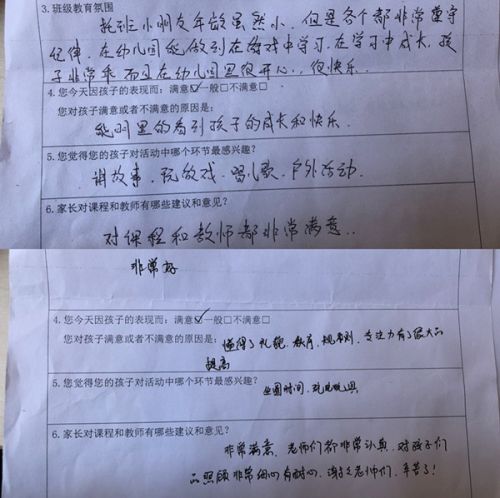 3. 班级教育氛围
托班小朋友年龄虽然小，但是各个都非常遵守
纪律，在幼儿园能做到在游戏中学习，在学习中成长，孩
子非常乖 而且在幼儿园里很开心，很快乐
4.您今天因孩子的表现而：满意☑一般□不满意□
您对孩子满意或者不满意的原因是：
能明显的看到孩子的成长和快乐
5.您觉得您的孩子对活动中哪个环节最感兴趣？
讲故事、玩游戏、唱儿歌、户外活动
6.家长对课程和教师有哪些建议和意见？
对课程和教师都非常满意..
非常好
4.您今天因孩子的表现而：满意☑一般□不满意□
您对孩子满意或者不满意的原因是：懂得了礼貌、教育、规则，专注力有了很大的
提高
5.您觉得您的孩子对活动中哪个环节最感兴趣？
坐圆时间、玩玩具
6.家长对课程和教师有哪些建议和意见？
非常满意、老师们都非常认真，对孩子们
的照顾非常细心有耐心，谢谢老师们，辛苦了！